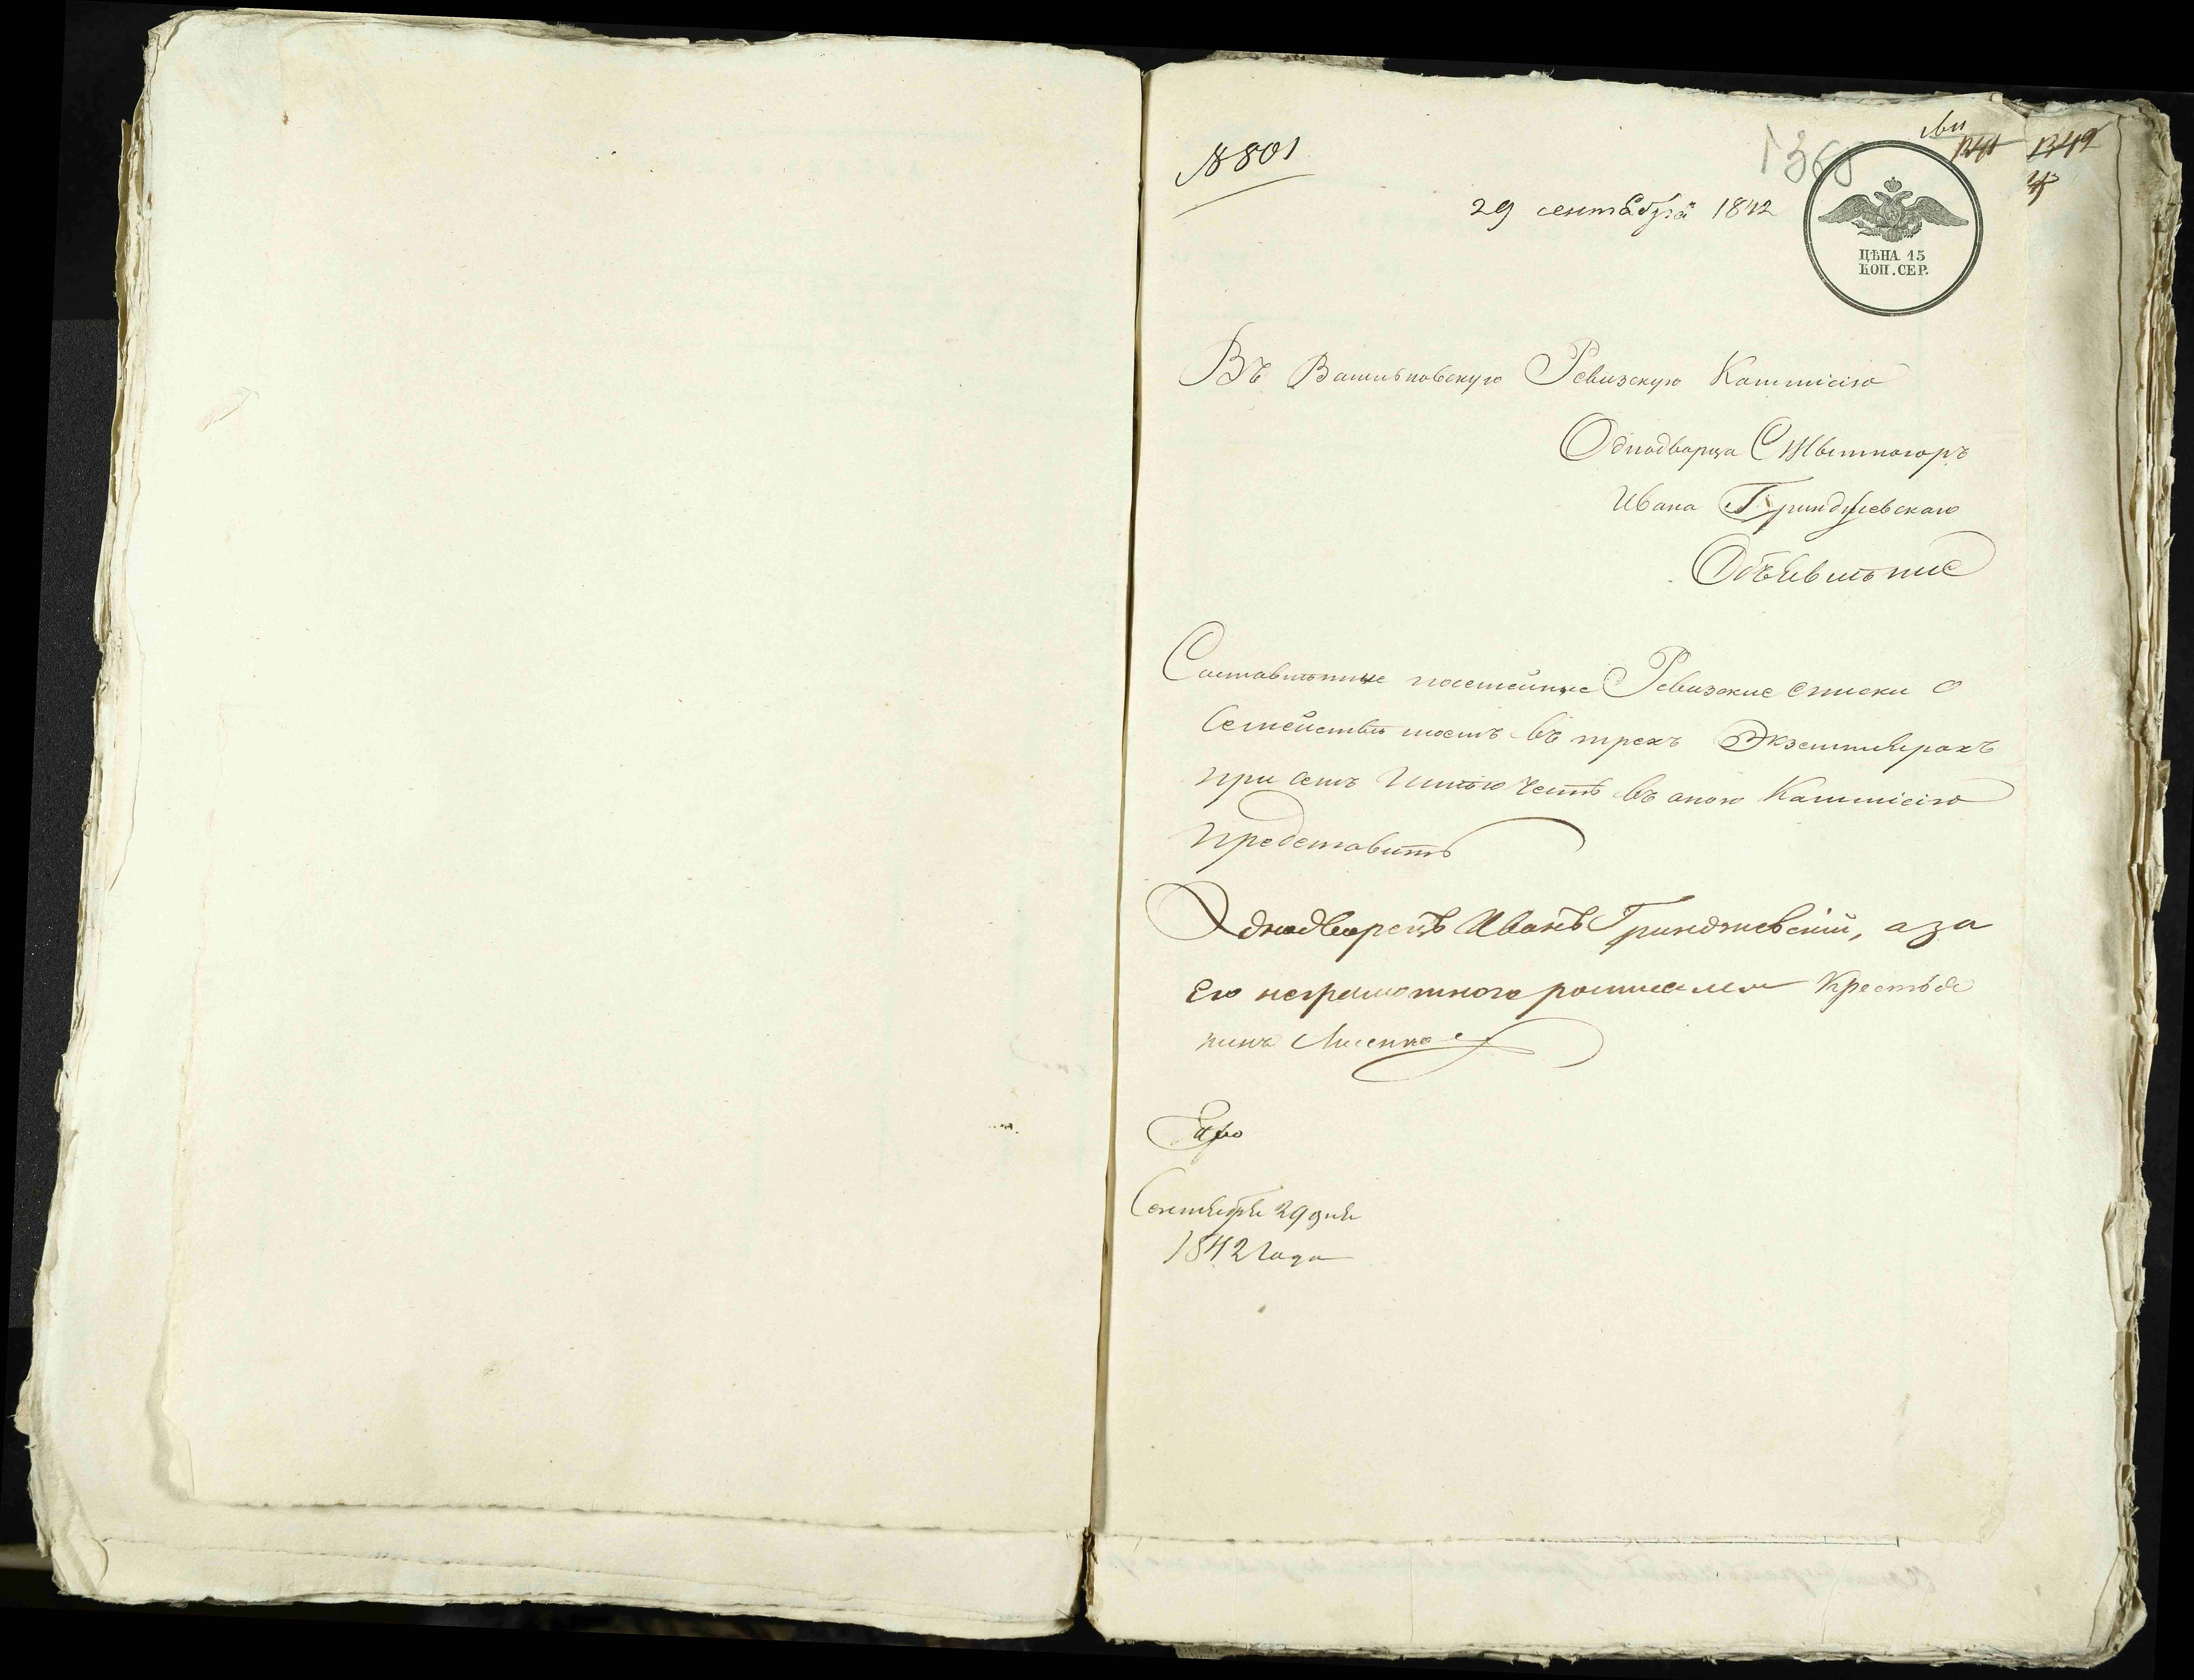 № 801
1365
1349
29 сентября 1842
ЦѢНА 15
КОП. СЕР.
Въ Васильковскую Ревизскую Коммисію
Однодворца
Ивана Гринджевскаго
Объявленіе
Составленные посемейные Ревизские списки о
Семействе моемъ въ трехъ Экземплярахъ
при семъ Имѣю честь въ оною Коммисію
представить
Однодворецъ Иванъ Гринджевскій, а за
Его неграмотного росписался Крестья
нинъ Лисенко
Сентября 29 дня
1842 Года